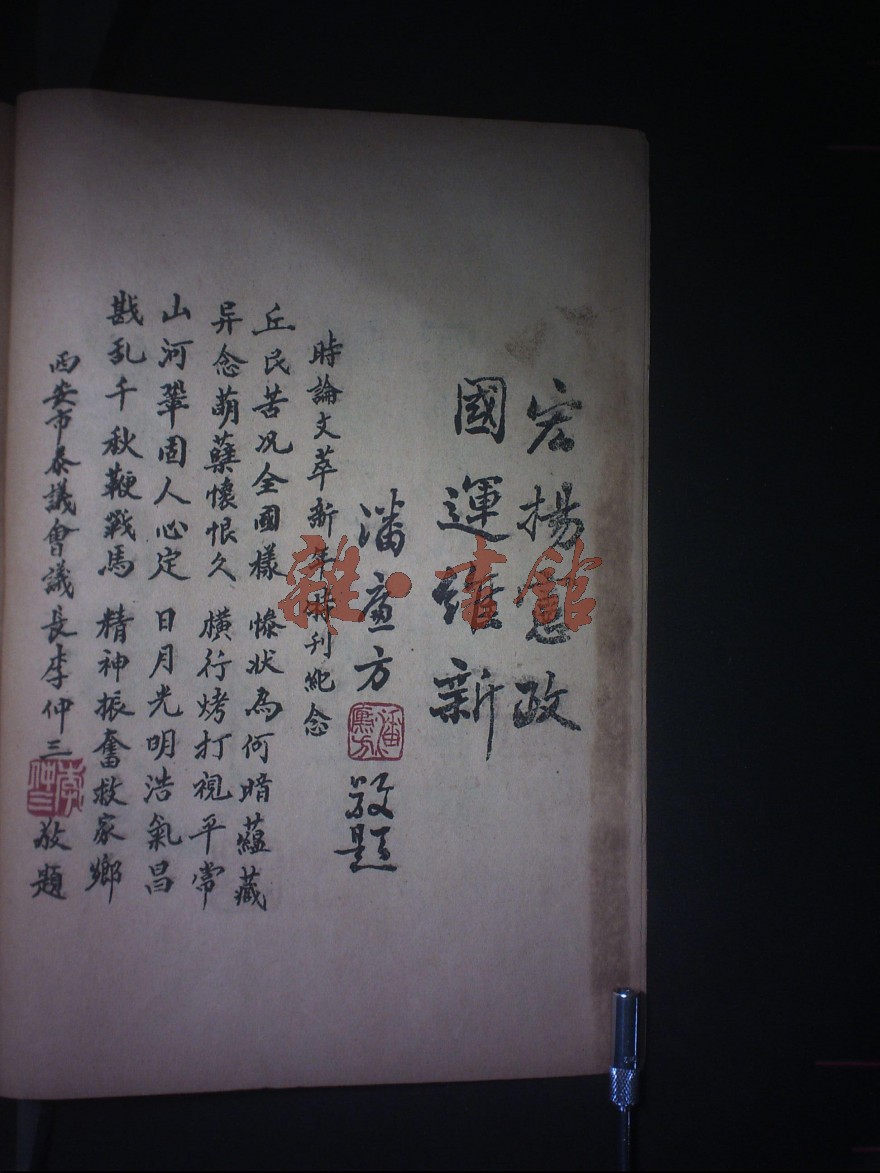 宏揚憲政
國運維新
潘廉方 敬題
潘廉方
時論文萃新年特刊紀念
丘民苦况全國樣 慘状為何暗蘊藏
异念萌孽懷恨久 橫行烤打視平常
山河鞏固人心定 日月光明浩氣昌
戡乱千秋鞭戰馬 精神振奮救家鄉
西安市叅議會議長李仲三敬題
李仲三
雜·書館